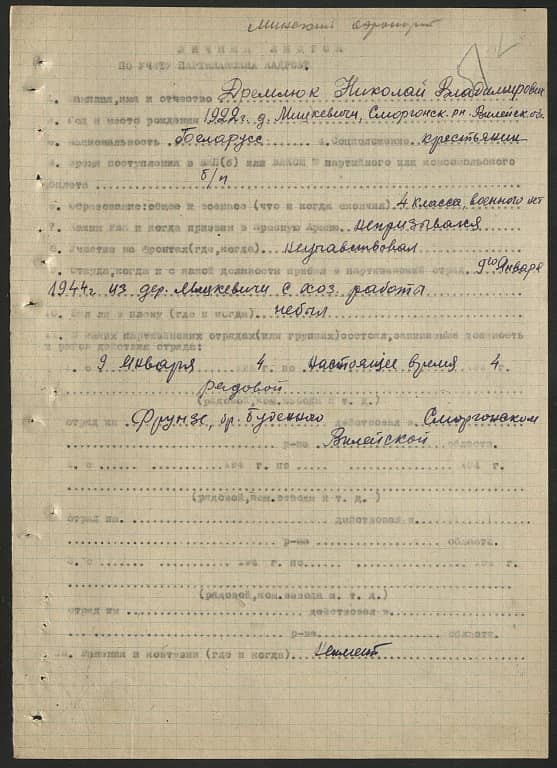 Минский аэропорт
ЛИЧНЫЙ ЛИСТОК
ПО УЧЕТУ ПАРТИЗАНСКИХ КАДРОВ
1. Фамилия, имя и отчество Дремлюк Николай Владимирович
2. Год и место рождения 1922 г. д. Мицкевичи, Сморгонск. рн. Вилейск. об.
3. Национальность Беларусс 4. Соцположение крестьянин
5. Время поступления в ВКП(б) или ВЛКСМ № партийного или комсомольского
билета б/п
6. Образование: общее и военное (что и когда окончил) 4 класса, военного нет
7. Каким РВК и когда призван в Красную Армию непризывался
8. Участие на фронтах (где, когда) неучавствовал
9. Откуда, когда и с какой должности прибыл в партизанский отряд 9го Января
1944 г из дер. Мицкевичи с хоз. работа
10. Был ли в плену (где и когда) небыл
11. В каких партизанских отрядах (или группах) состоял, занимаемые должность
и район действия отряда:
1. с 9 Января 4 г. по настоящее время 4.
рядовой
(рядовой, ком. взвода и т. д.)
отряд им. Фрунзе, бр. Буденного действовал в Сморгонском
р-не Вилейской области.
2. с 194 г. по 194 г.
(рядовой, ком. взвода и т. д.)
отряд им. действовал в
р-на области.
3. с 194 г. по 194 г.
(рядовой, ком. взвода и т. д.)
отряд им действовал в
р-на. области.
12. Ранения и контузии (где и когда) неимеет